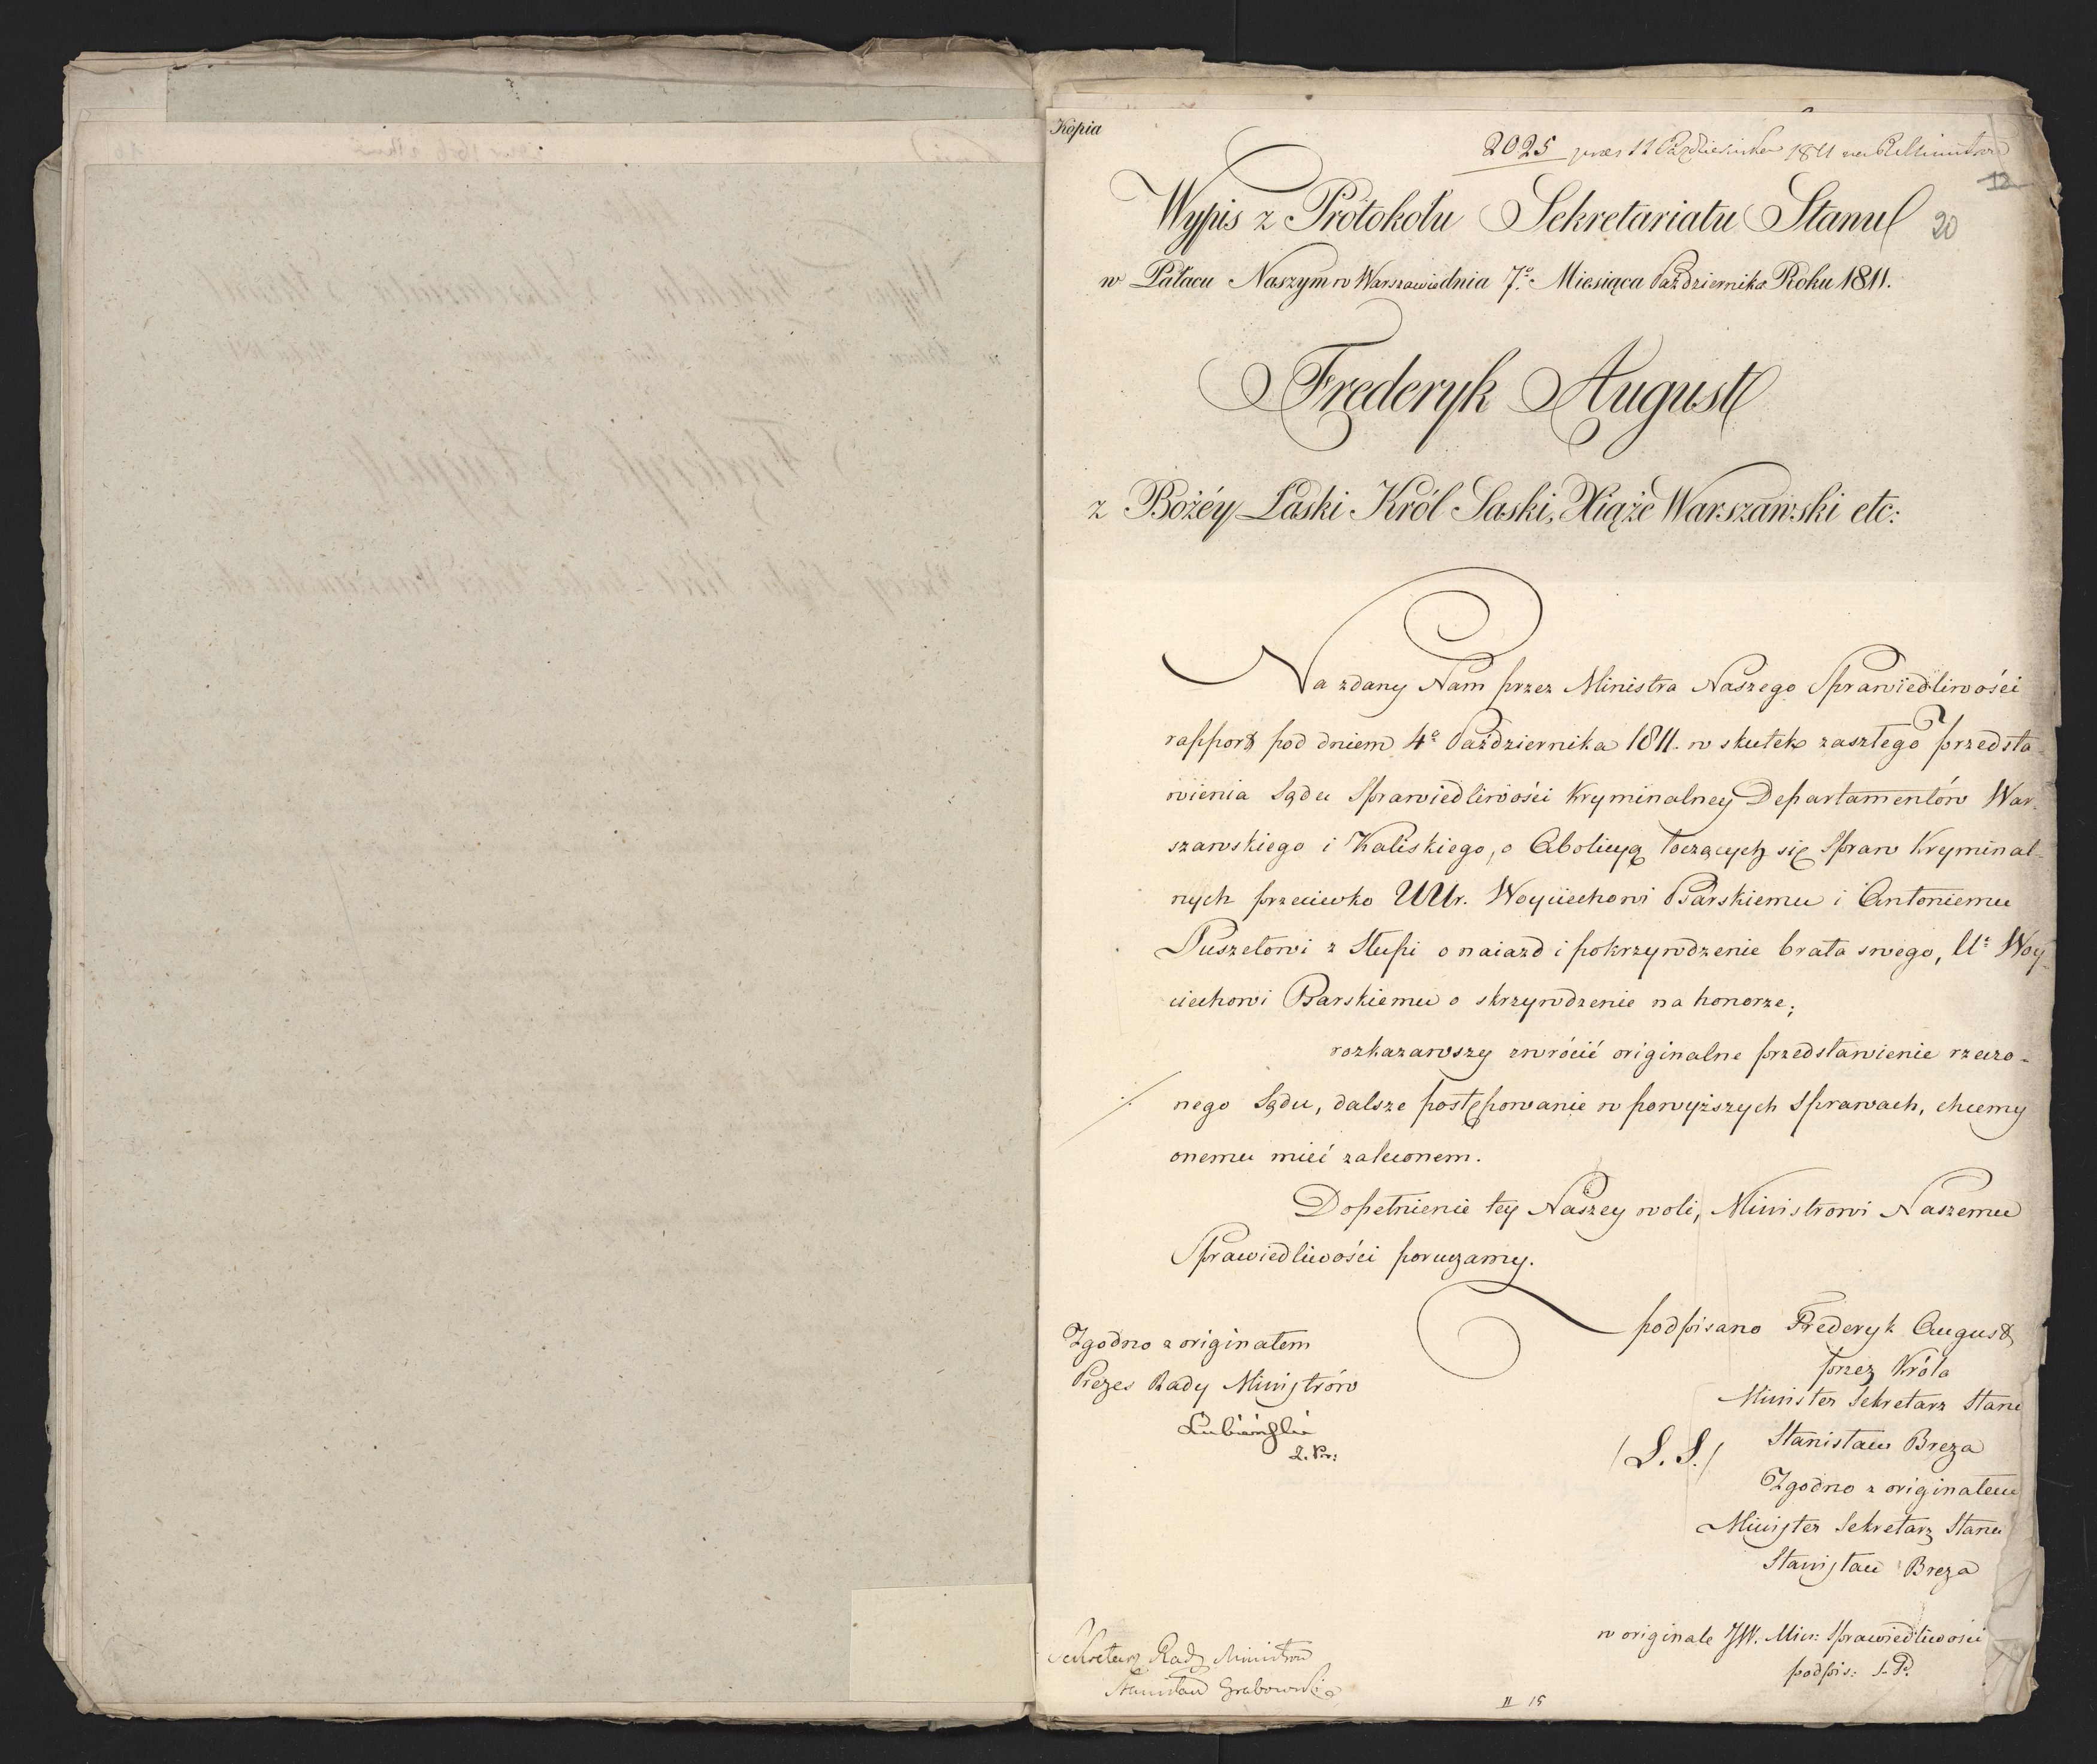 Kopia
2025 prez 11 Października 1811 na R. Ministrów
12
Wypis z Protokołu Sekretariatu Stanu
20
w Pałacu Naszym w Warszawie dnia 7º Miesiąca Października Roku 1811.
Frederyk August
z Bożéy Łaski Król Saski, Xiąże Warszawski etc:
Na zdany Nam przez Ministra Naszego Sprawiedliwości
rapport pod dniem 4º Października 1811. w skutek zaszłego przedsta-
wienia Sądu Sprawiedliwości Kryminalney Departamentów War-
szawskiego i Kaliskiego, o Abolicyą toczących się Spraw Kryminal-
nych przeciwko UUr. Woyciechowi Barskiemu i Antoniemu
Puszetowi z Słupi o naiazd i pokrzywdzenie brata swego, Uº Woy-
ciechowi Barskiemu o skrzywdzenie na honorze;
rozkazawszy zwrócić originalne przedstawienie rzeczo-
nego Sądu, dalsze postępowanie w powyższych Sprawach, chcemy
onemu mieć zaleconem.
Dopełnienie tey Naszey woli, Ministrowi Naszemu
Sprawiedliwości poruczamy.
podpisano Frederyk August
przez Króla
Minister Sekretarz Stanu
Stanisław Breza
(L. S.)
Zgodno z originałem
Minister Sekretarz Stanu
Stanisław Breza
Zgodno z originałem
Prezes Rady Ministrów
Łubieński
Z. Pr:
w originale JW. Min: Sprawiedliwości
podpis: J. P.
Sekretarz Rady Ministrów
Stanisław Grabowski
II 15